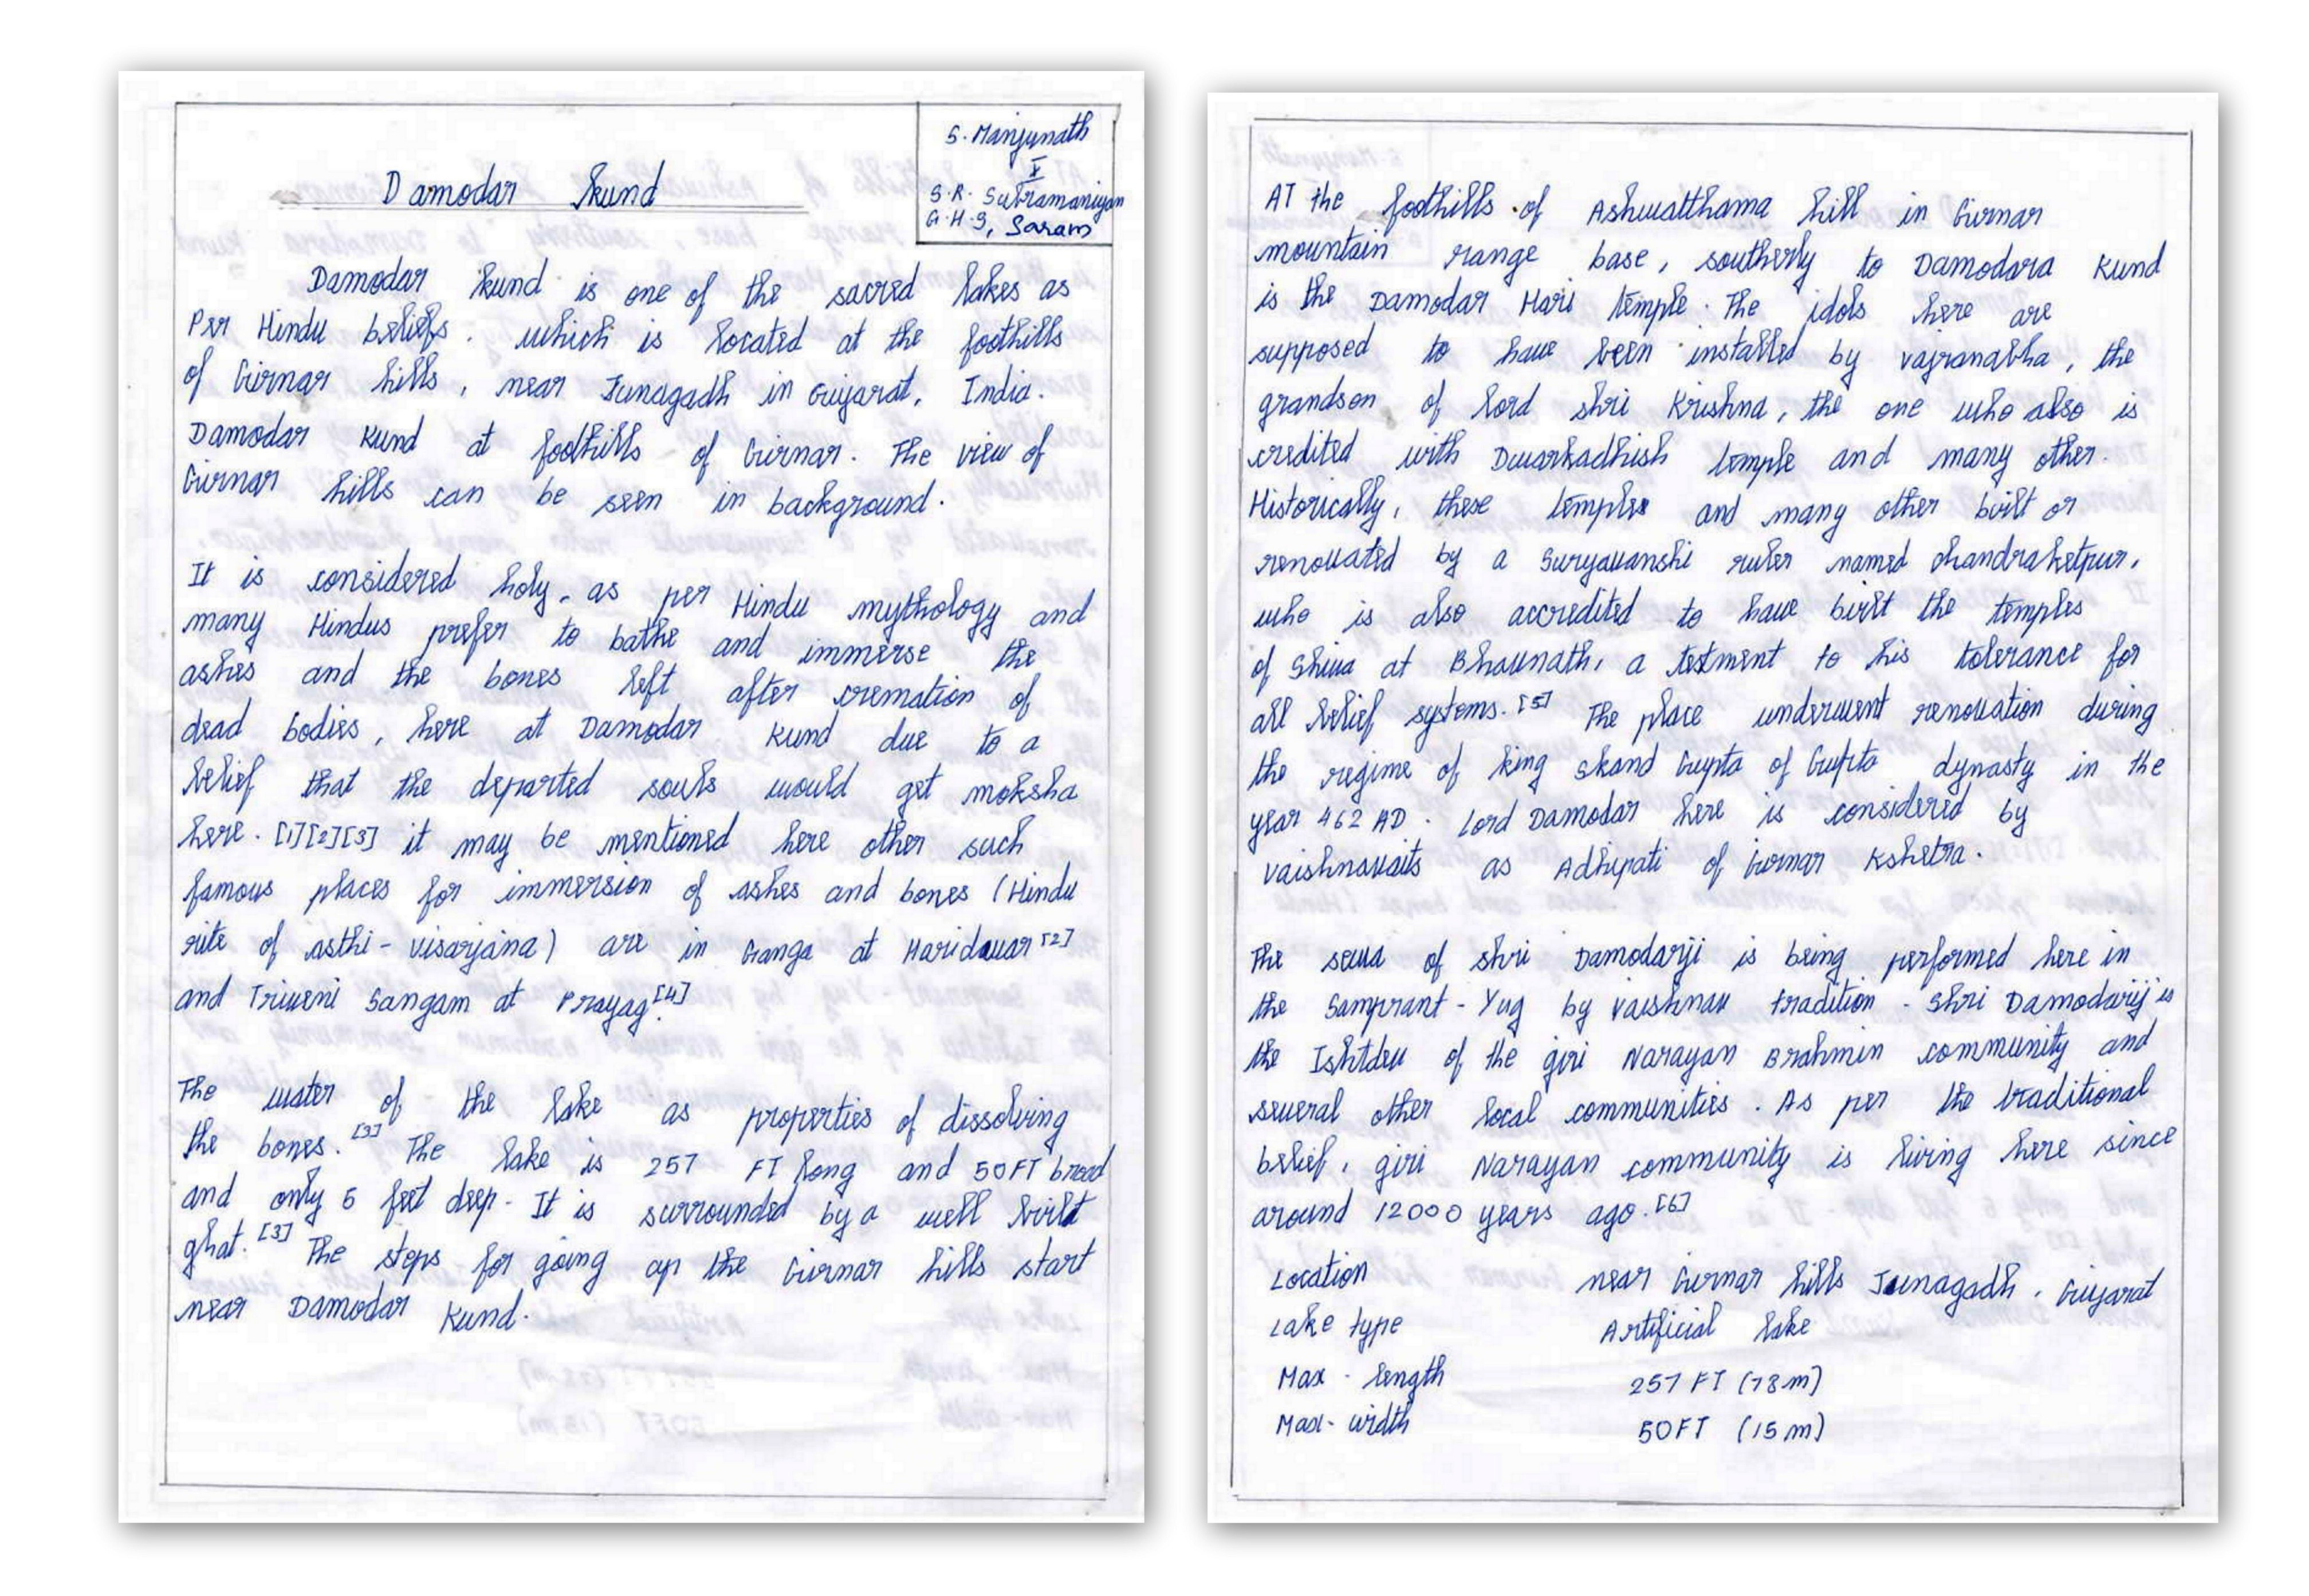 S. Manjunath
X
S.R. Subramaniyan
G.H.S, Saram
Damodar Kund
Damodar kund is one of the sacred lakes as
Per Hindu beliefs. which is located at the foothills
of Girnar hills, near Junagadh in Gujarat, India.
Damodar Kund at foothills of Girnar. The view of
Girnar hills can be seen in background.
It is considered holy. as per Hindu mythology and
many Hindus prefer to bathe and immerse the
ashes and the bones left after cremation of
dead bodies, here at Damodar Kund due to a
belief that the departed souls would get moksha
here. [1][2][3] it may be mentioned here other such
famous places for immersion of ashes and bones (Hindu
rite of asthi-visarjana) are in Ganga at Haridwar [2]
and Triveni Sangam at Prayag.[4]
The water of the lake as properties of dissolving
the bones. [3] The lake is 257 FT long and 50FT broad
and only 5 feet deep. It is surrounded by a well built
ghat. [3] The steps for going up the Girnar hills start
near Damodar Kund.
AT the foothills of Ashwatthama hill in Girnar
mountain range base, southerly to Damodara Kund
is the Damodar Hari temple. The idols here are
supposed to have been installed by vajranabha, the
grandson of lord shri Krishna, the one who also is
credited with Dwarkadhish temple and many other.
Historically, these temples and many other built or
renovated by a Suryavanshi ruler named chandraketpur,
who is also accredited to have built the temples
of Shiva at Bhavnath, a testment to his tolerance for
all belief systems. [5] The place underwent renovation during
the regime of king Skand Gupta of Gupta dynasty in the
year 462 AD. Lord Damodar here is considered by
vaishnavaits as Adhipati of Girnar Kshetra.
The seva of shri Damodarji is being performed here in
the Samprant-Yug by vaishnav tradition. Shri Damodarij is
the Ishtdev of the giri Narayan Brahmin community and
several other local communities. As per the traditional
belief, giri Narayan community is living here since
around 12000 years ago. [6]
Location near Girnar hills Junagadh. Gujarat
Lake type Artificial lake
Max. length 257 FT (78m)
Max. width 50FT (15m)